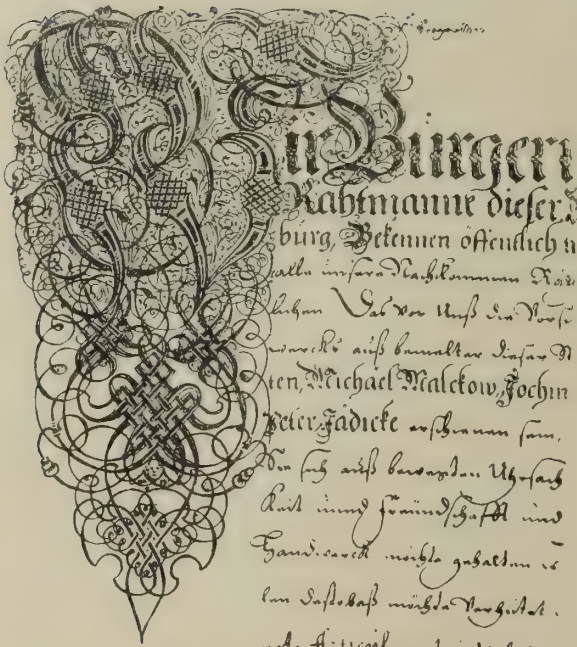 Wir Bürgerm
Rahtmanne dieser
burg, Bekennen öffentlich u
alle unsere Nachkommen
lichen Das vor Unß die Vorst
wercks auß bemelter dieser St
ten, Michael Malckow, Jochim
Peter Jädicke erschienen sein,
Sie sich auß bewegten Uhrsach
keit unnd Freündschafft und
Handwerck möchte gehalten
len destobaß möchte Verhütet